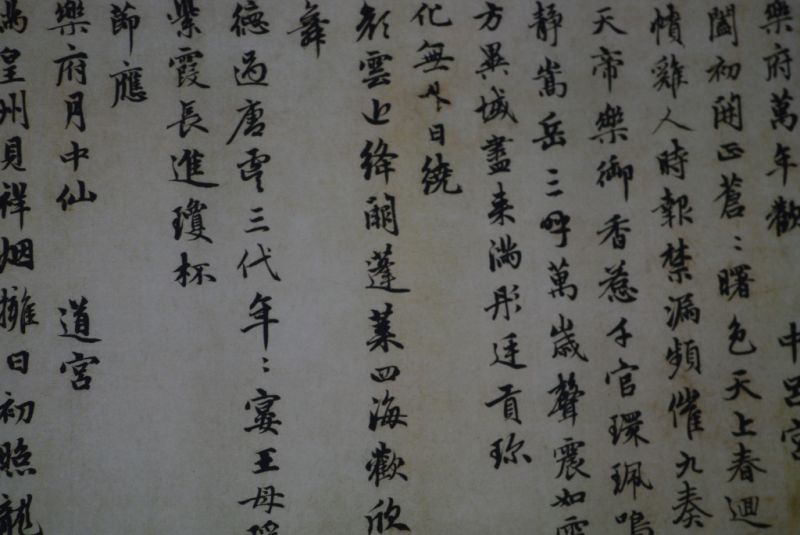 樂府萬年歡 中呂宮
闔初開正蒼〻曙色天上春迴
幘雞人時報禁漏頻催九奏
天帝樂御香惹千官環珮鳴
靜嵩岳三呼萬歲聲震如雷
方異域盡来滿彤廷貢珎
化無日繞
雲上絳闕蓬莱四海歡欣
舞
德過唐虞三代年〻宴王母瑤
紫霞長進瓊杯
節應
樂府月中仙 道宮
為皇州見祥烟擁日初照龍